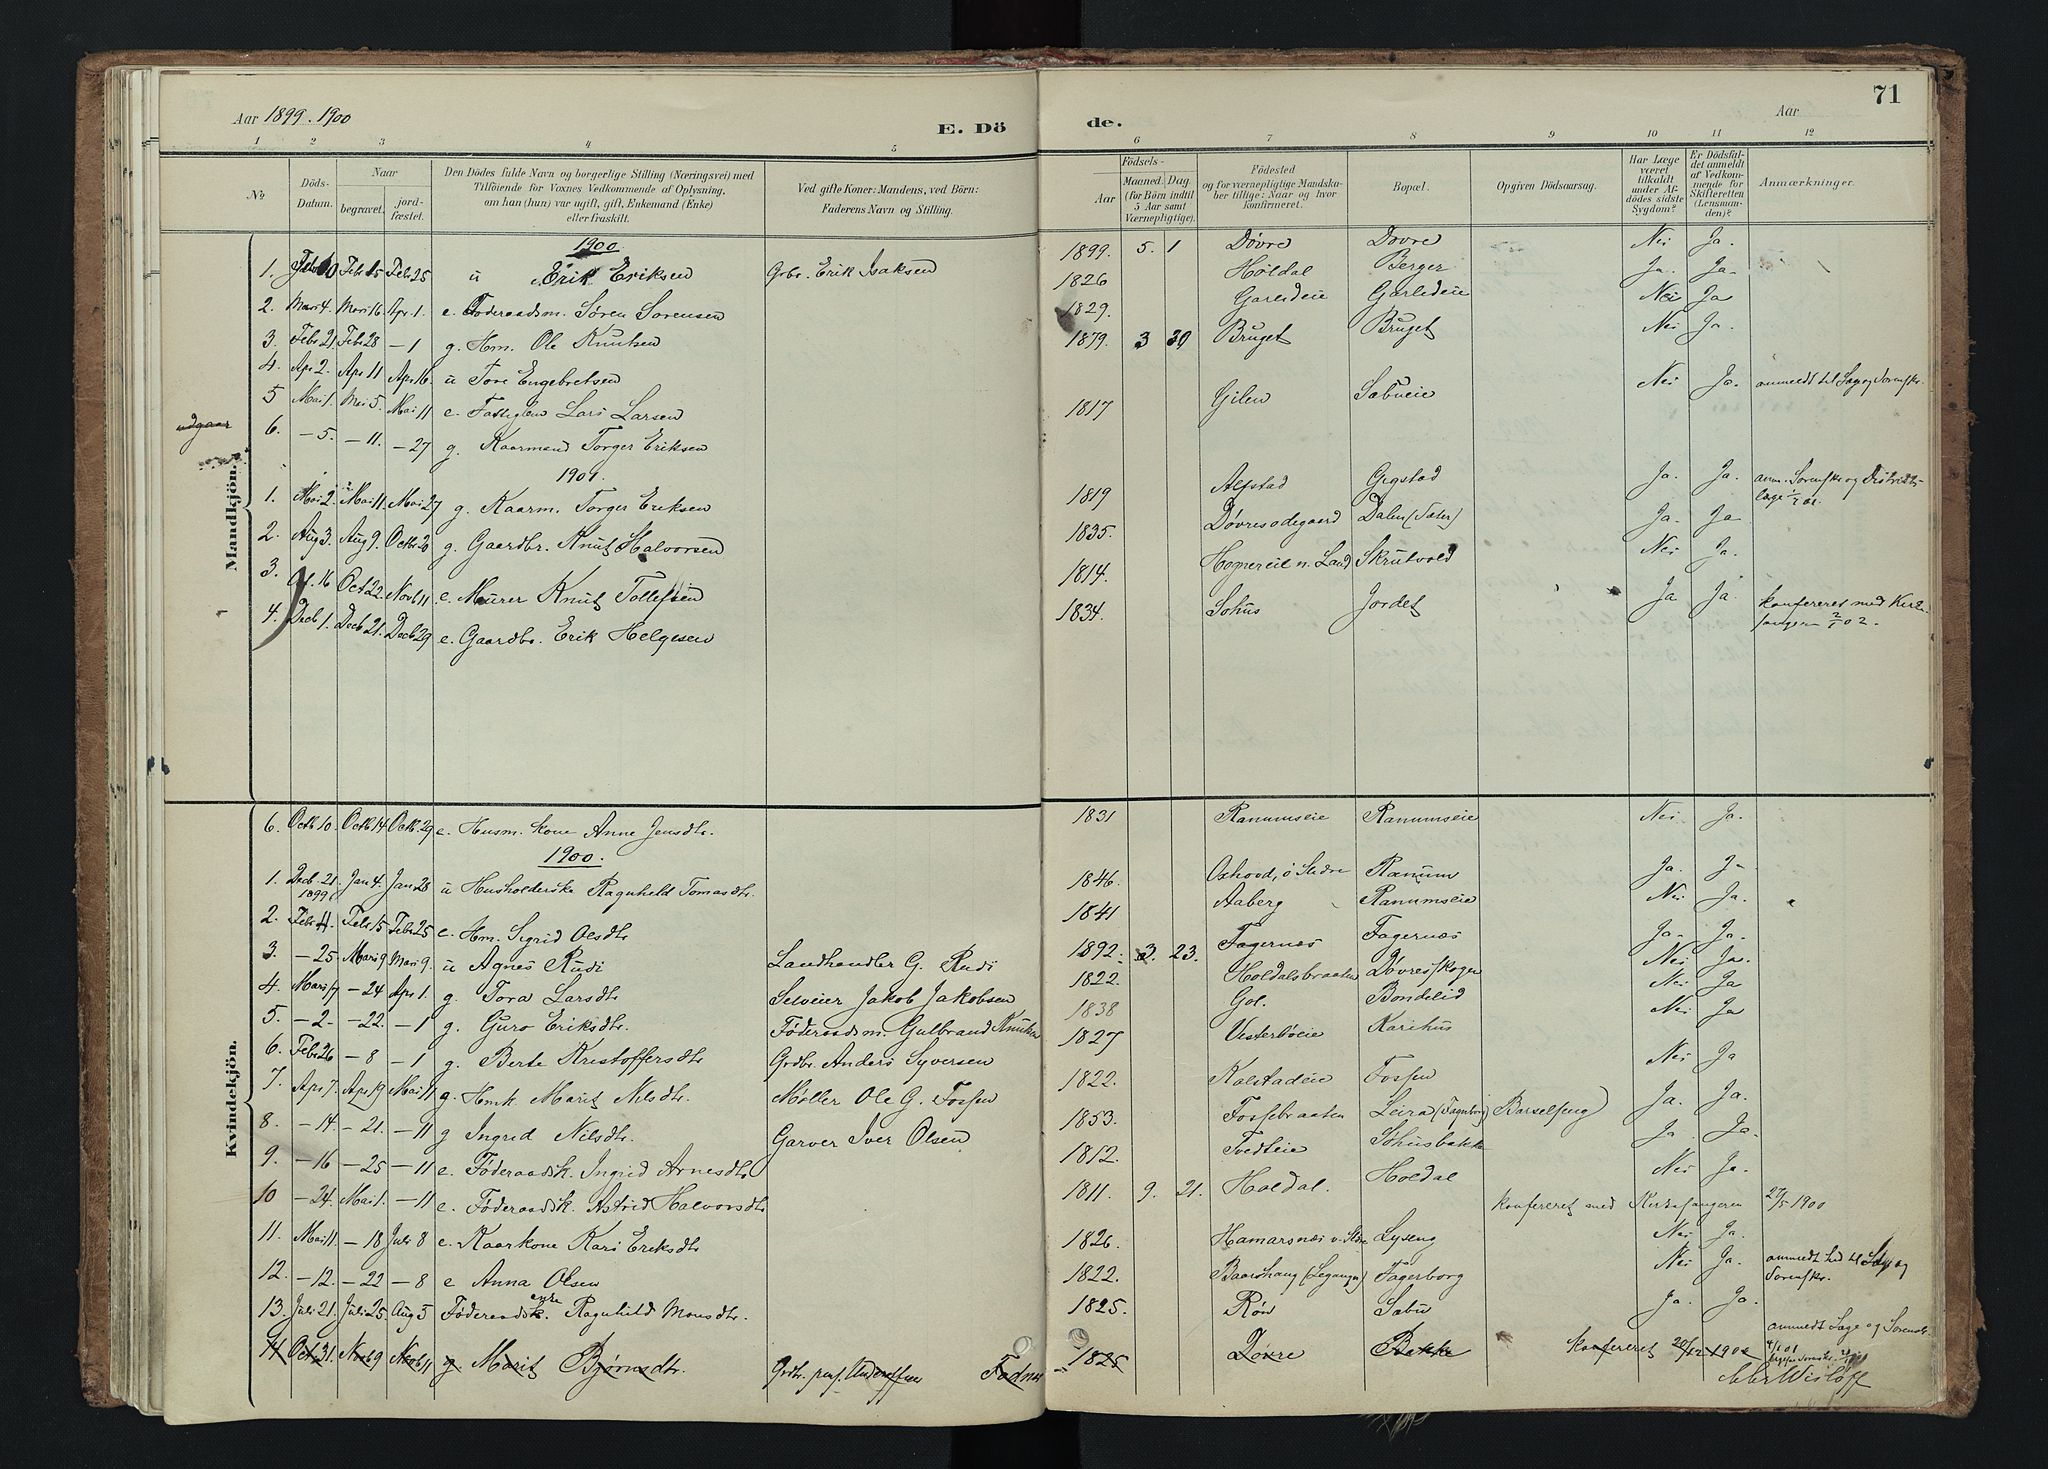 Aar 1899.1900
E. Dö
de.
Aar
71
1 2 3 4 5 6 7 8 9 10 11 12
No
Döds-Datum.
Naar
begravet.
jord-fæstet.
Den Dödes fulde Navn og borgerlige Stilling (Næringsvei) med
Tilföiende for Voxnes Vedkommende af Oplysning,
om han (hun) var ugift, gift, Enkemand (Enke)
eller fraskilt.
Ved gifte Koner: Mandens, ved Börn:
Faderens Navn og Stilling.
Födsels-
Aar
Maaned. Dag
(for Börn indtil
5 Aar samt
Værnepligtige).
Födested
og for værnepligtige Mandska-
ber tillige: Naar og hvor
konfirmeret.
Bopæl.
Opgiven Dödsaarsag.
Har Læge
været
tilkaldt
under Af-
dödes sidste
Sygdom?
Er Dödsfal-
det anmeldt
af Vedkom-
mende for
Skifteretten
(Lensman-
den)?
Anmærkninger.
Mandkjön.
1900
1. Febr 10 Febr 15 Febr 25 u Erik Eriksen Grbr. Erik Isaksen 1899 5. 1 Døvre Dovre Nei Ja.
2. Mars 4. Mars 16. Apr. 1. e. Føderaadsm. Sören Sørensen 1826 Høldal Berger Ja. Ja.
3. Febr 21 Febr 28 — 1 g. Hm. Ole Knutsen 1829. Garlideie Garlideie Nei Ja
4. Apr 2. Apr 11 Apr 16. u Tore Engebretsen 1879. 3 30 Bruget Bruget Nei Ja.
5 Mai 1. Mai 5. Mai 11 e. Fattiglem Lars Larsen 1817 Gilen Sæbueie Nei Ja. anmeldt til Læge og Sorenskr.
udgaar 6. — 5. — 11. — 27 g. Kaarmand Torger Eriksen
1901.
1. Mai 2. Mai 11 Mai 27 g. Kaarm. Torger Eriksen 1819 Alfstad Gigstad Ja. Ja. anm. Sorenskr og Distrikts-
læge
2. Aug 3. Aug 9. Octbr 20 g. Gaardbr. Knut Halvorsen 1835. Døvresødegaard Dalen (Sæter) Ja. Ja
3. Oct. 16 Oct 22. Novb 11 e. Murer Knut Tollefsen 1814. Høgnereie n. Land Skrutvold Nei Ja.
4. Decb 1. Decb 21. Decb 29 e. Gaardbr. Erik Helgesen 1834. Sohus Jordet Ja Ja. konfereret med Kirke-
sangeren 2/1 02.
Kvindekjön.
6. Octb 10. Octb 14 Octb. 29 e. Husm. kone Anne Jensdtr. 1831 Ranumseie Ranumseie Nei Ja.
1900.
1. Decb. 21. 1899 Jan 4. Jan 28 u Husholderske Ragnhild Tomasdtr. 1846. Oxhovd, ø Slidre Ranum Ja. Ja
2. Febr 11. Febr 15 Febr 25 e. Hm. Sigrid Olsdtr 1841 Aaberg Ranumseie Nei Ja.
3. — 25 Mars 9 Mars 9. u Agnes Rudi Landhandler G. Rudi 1892. 3. 23. Fagernæs Fagernæs Ja. Ja.
4. Mars 17 — 24 Apr 1. g. Tora Larsdtr Selveier Jakob Jakobsen 1822. Holdalsbraaten Døvreskogen Nei Ja.
5. — 2. — 22. — 1 g. Guro Eriksdtr. Føderaadsm. Gulbrand Knutsen 1838 Gol. Bondelid Nei Ja
6. Febr 26 — 8 — 1 g. Berte Kristoffersdtr Grdbr. Anders Syversen 1827 Vesterbøeie Karihus Nei Ja
7. Apr 7. Apr 19 Mai 11 g. Hmk Marit Nilsdtr. Møller Ole G. Fossen 1822. Kalstadeie Fossen Nei Ja
8. — 14. — 21. — 11 g Ingrid Nilsdtr. Garver Iver Olsen 1853. Fossebraaten Leira (Fagerborg) Barselseng Ja. Ja.
9. — 16 — 25 — 11 e. Føderaadsk. Ingrid Arnesdtr 1812. Tvedteie Søhusbakke Ja. Ja.
10 — 24. Mai 1. — 11 e. Føderaadsk. Astrid Halvorsdtr 1811. 9. 21. Holdal. Holdal Nei Ja.
konfereret med Kirkesangeren 27/5 1900
11. Mai 11. — 18 Juli 8 e. Kaarkone Kari Eriksdtr 1826. Hamarsnæs v. Slidre Lyseng Nei Ja.
12. — 12. — 22 — 8 e Anna Olsen 1822. Baarshaug (Leganger) Fagerborg Nei Ja. anmeldt til Læge og
Sorenskr.
13. Juli 21. Juli 25. Aug 5 Føderaadsk. Ragnhild Monsdtr. 1825. Røn Sæbu Ja. Ja.
anmeldt Læge og Sorenskr.
14 Oct. 31. Novb 9 Novb 11 g Marit Bjørnsdtr. Grdbr. Anderssen Fodnes 1825 Døvre Bakke Konfereret 20/12 1900
4/1 01
Wisløff